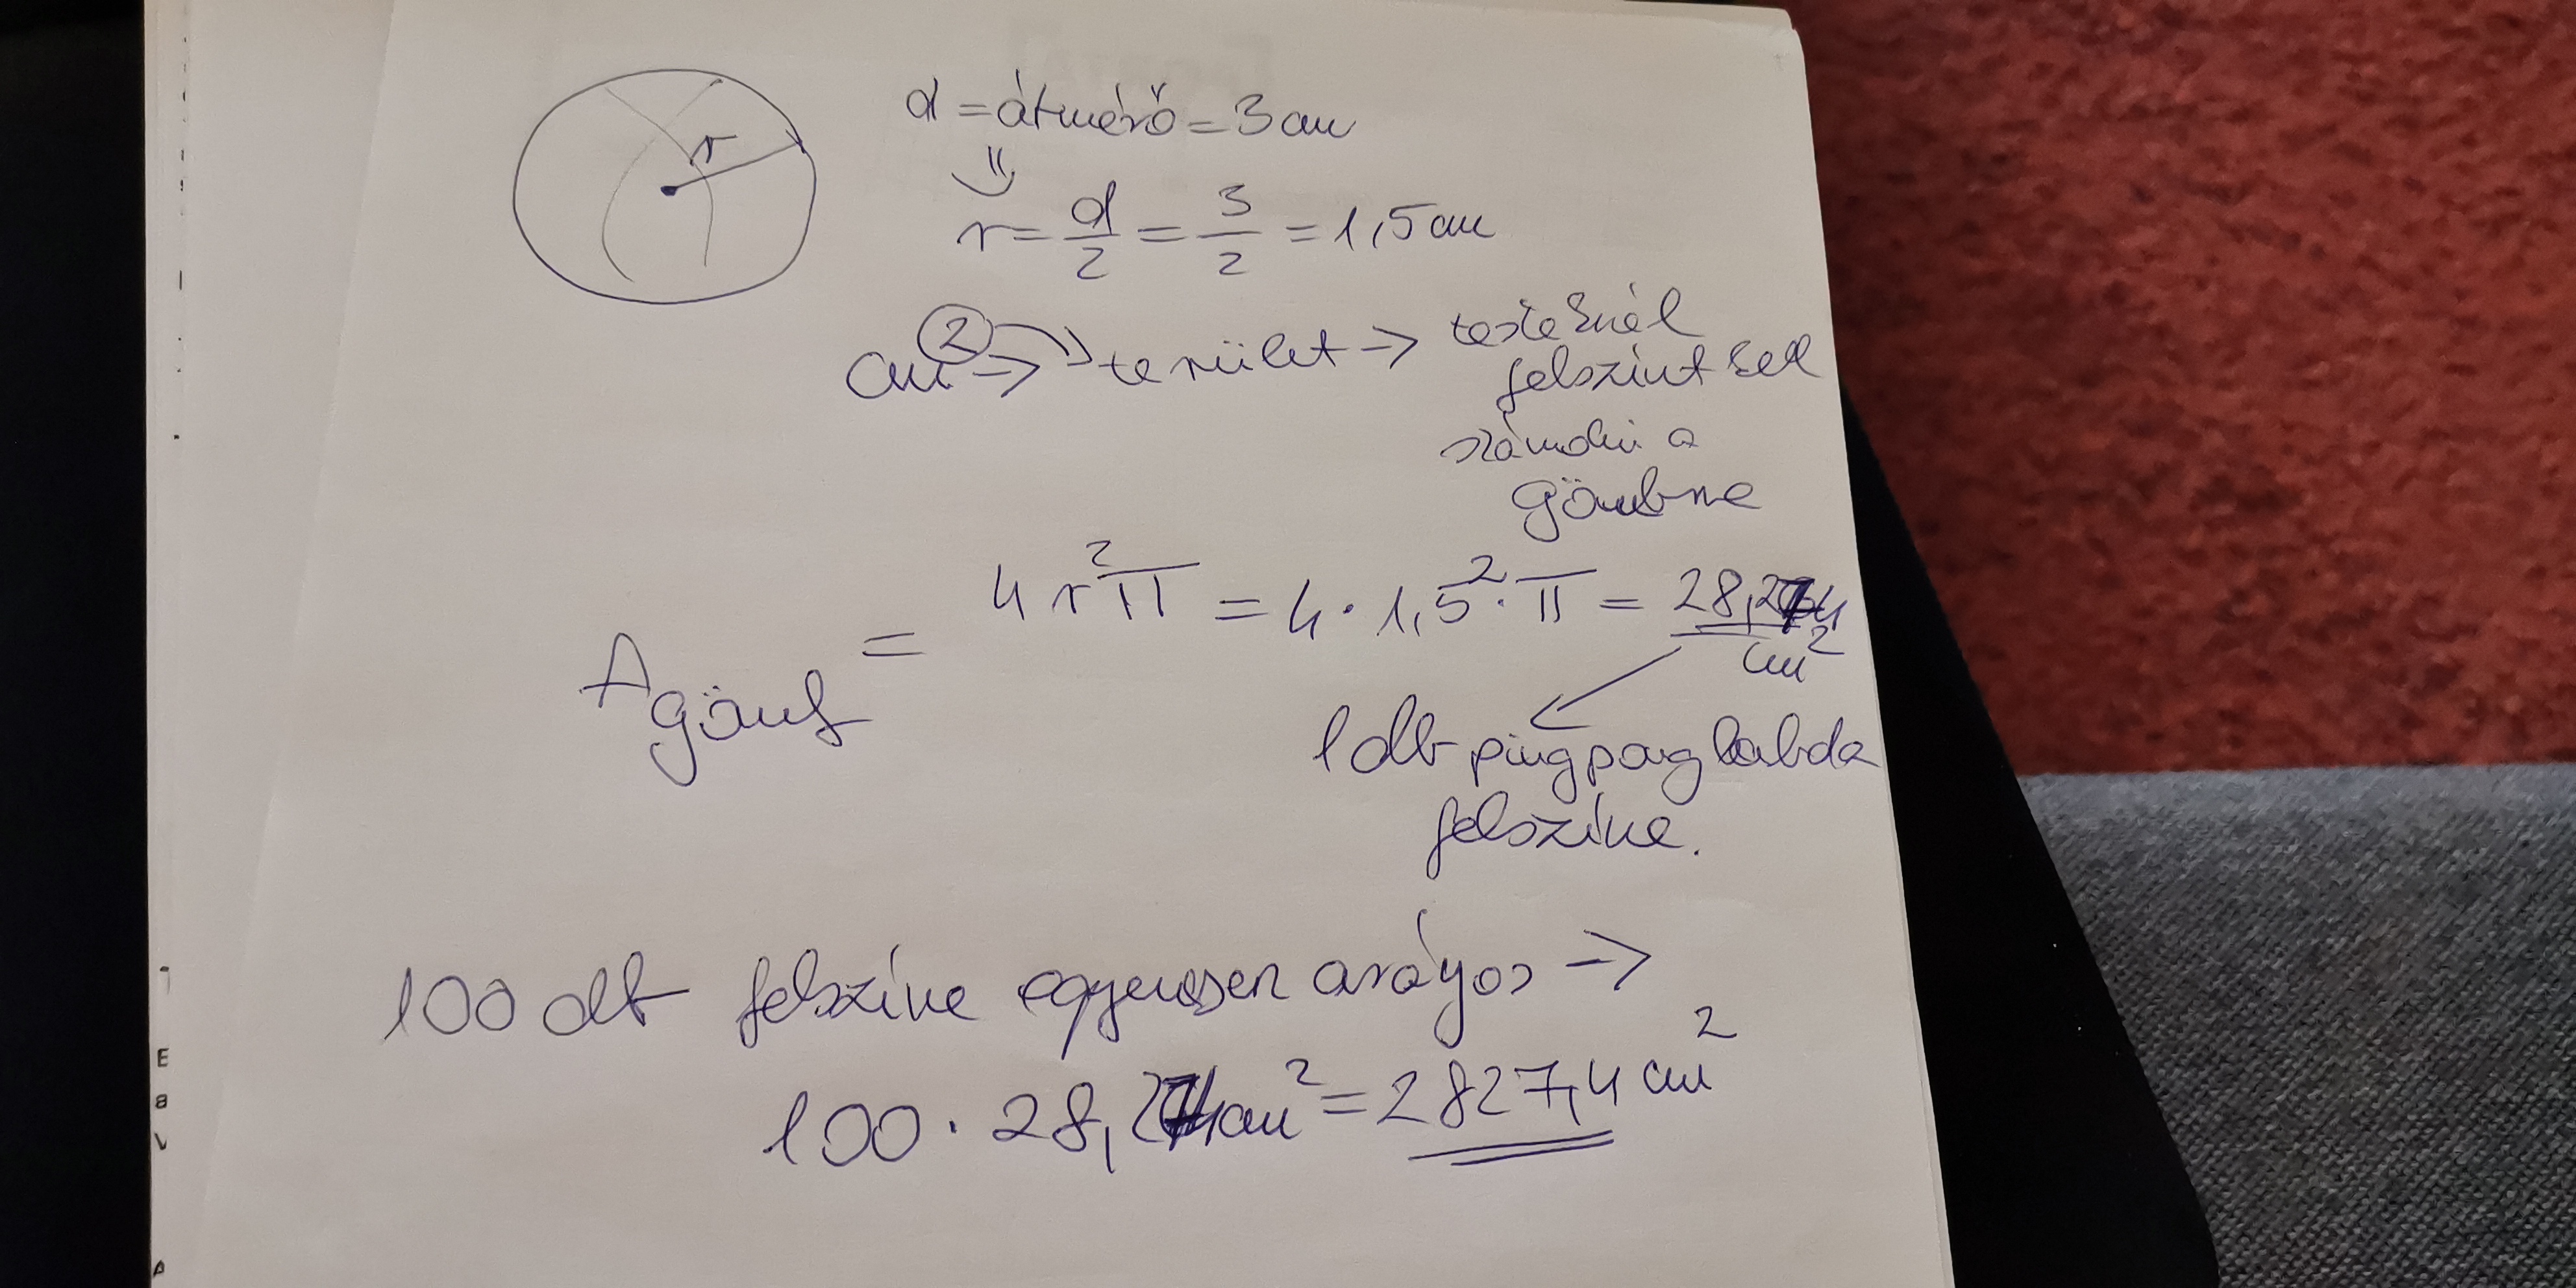 r
d = átmérő = 3 cm
r = d/2 = 3/2 = 1,5 cm
cm² → terület → testeknél
felszínt kell
számolni a
gömbre
A gömb = 4r²π = 4 · 1,5² · π = 28,274
cm²
1 db pingpong labda
felszíne.
100 db felszíne egyenesen arányos →
100 · 28,274 cm² = 2827,4 cm²
E
a
V
A